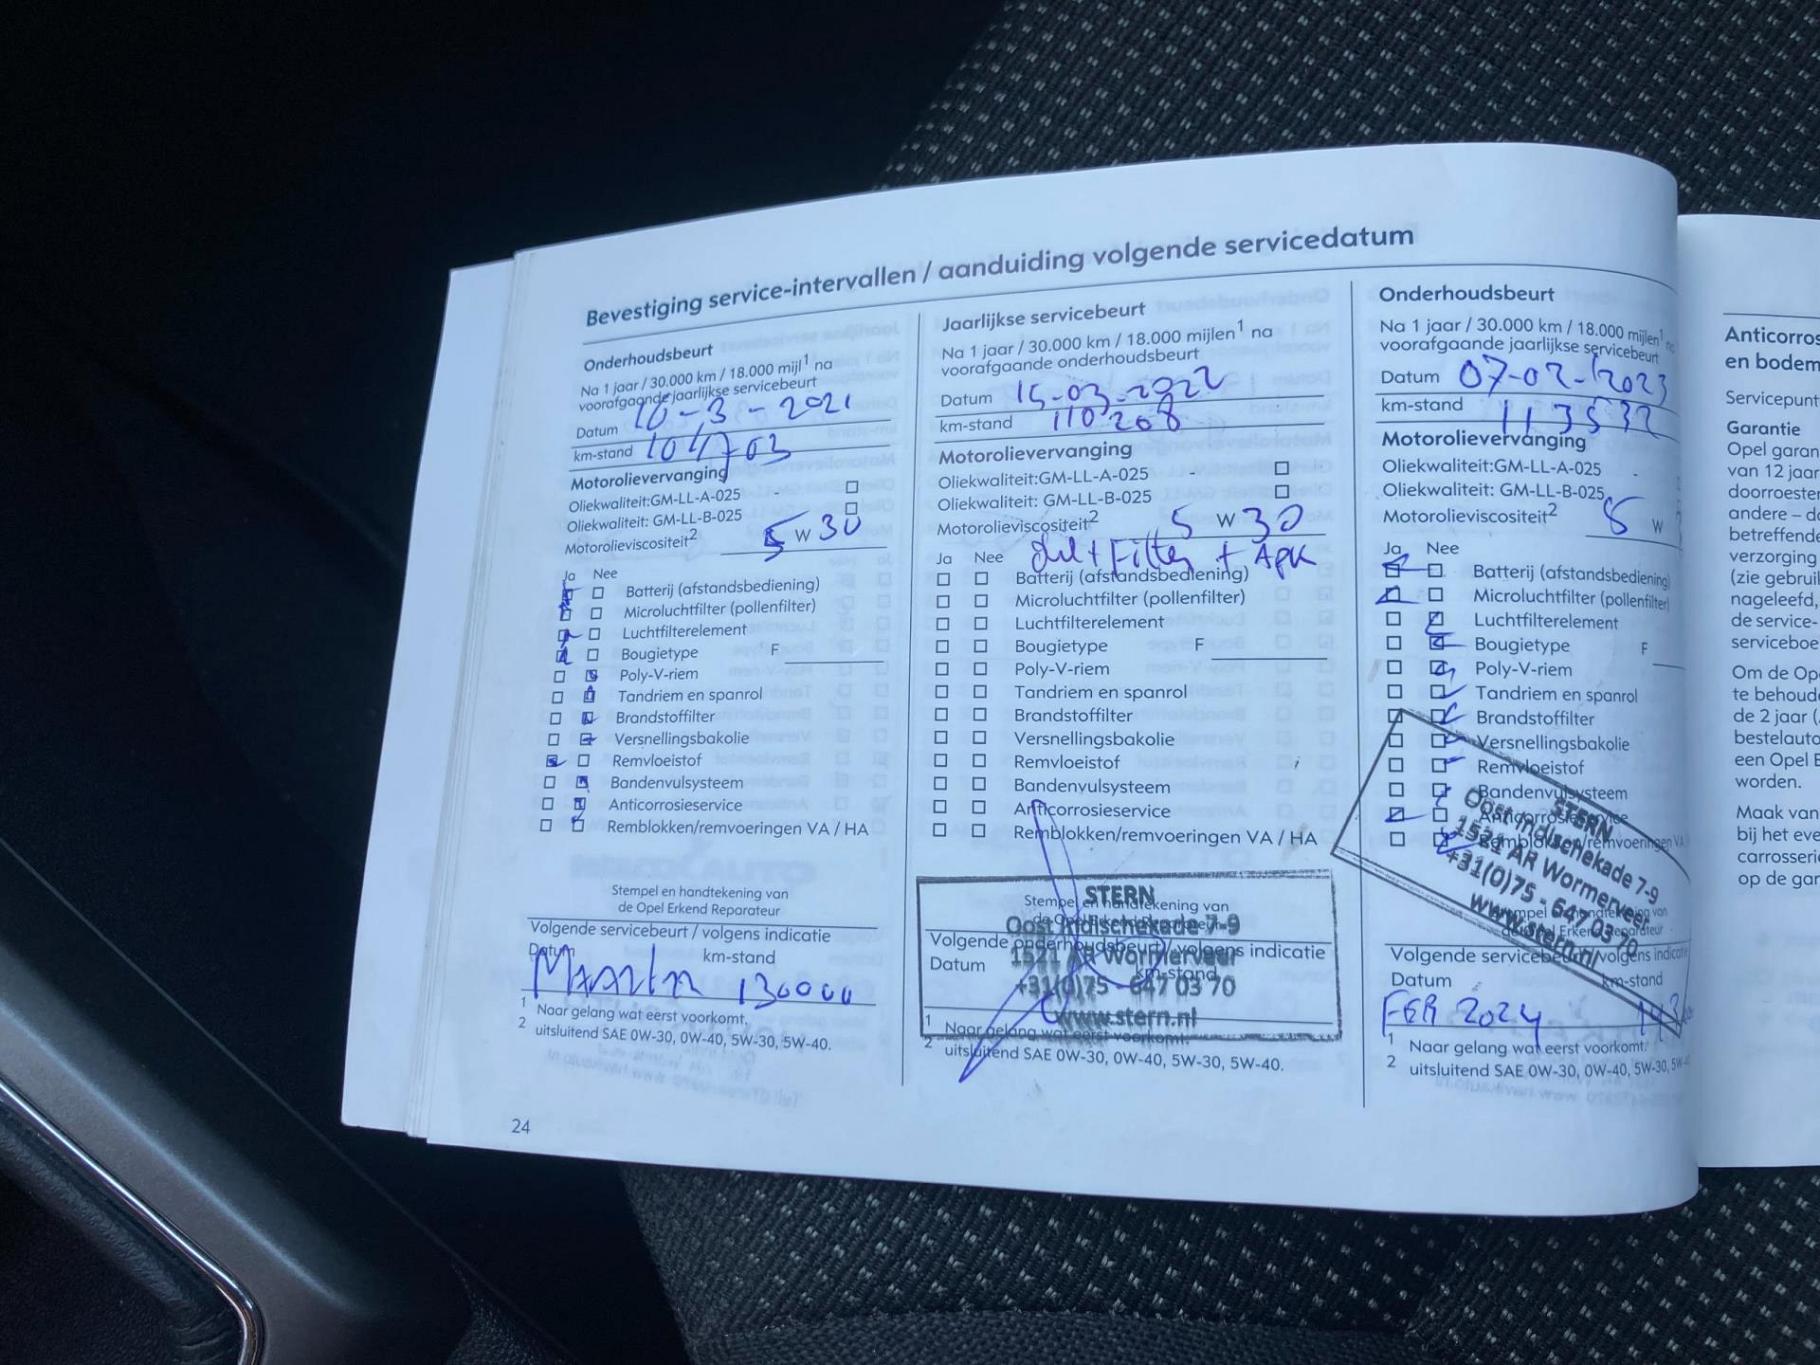 Bevestiging service-intervallen / aanduiding volgende servicedatum
Onderhoudsbeurt
Na 1 jaar / 30.000 km / 18.000 mijl¹ na
voorafgaande jaarlijkse servicebeurt
Datum 16-3-2021
km-stand 104703
Motorolievervanging
Oliekwaliteit:GM-LL-A-025
Oliekwaliteit: GM-LL-B-025
Motorolieviscositeit² 5 W 30
Ja Nee
Batterij (afstandsbediening)
Microluchtfilter (pollenfilter)
Luchtfilterelement
Bougietype F
Poly-V-riem
Tandriem en spanrol
Brandstoffilter
Versnellingsbakolie
Remvloeistof
Bandenvulsysteem
Anticorrosieservice
Remblokken/remvoeringen VA / HA
Stempel en handtekening van
de Opel Erkend Reparateur
Volgende servicebeurt / volgens indicatie
Datum km-stand
130000
1 Naar gelang wat eerst voorkomt.
2 uitsluitend SAE 0W-30, 0W-40, 5W-30, 5W-40.
24
Jaarlijkse servicebeurt
Na 1 jaar / 30.000 km / 18.000 mijlen¹ na
voorafgaande onderhoudsbeurt
Datum 15-03-2022
km-stand 110208
Motorolievervanging
Oliekwaliteit:GM-LL-A-025
Oliekwaliteit: GM-LL-B-025
Motorolieviscositeit² 5 W 30
Ja Nee + Filter + APK
Batterij (afstandsbediening)
Microluchtfilter (pollenfilter)
Luchtfilterelement
Bougietype F
Poly-V-riem
Tandriem en spanrol
Brandstoffilter
Versnellingsbakolie
Remvloeistof
Bandenvulsysteem
Anticorrosieservice
Remblokken/remvoeringen VA / HA
STERN
Stempel en handtekening van
Oost Indischekade 7-9
Volgende onderhoudsbeurt / volgens indicatie
1521 AR Wormerveer
Datum km-stand
+31(0)75 - 647 03 70
www.stern.nl
1 Naar gelang wat eerst voorkomt.
2 uitsluitend SAE 0W-30, 0W-40, 5W-30, 5W-40.
Onderhoudsbeurt
Na 1 jaar / 30.000 km / 18.000 mijlen¹
voorafgaande jaarlijkse servicebeurt
Datum 07-02-2023
km-stand 113532
Motorolievervanging
Oliekwaliteit:GM-LL-A-025
Oliekwaliteit: GM-LL-B-025
Motorolieviscositeit² 5 W
Ja Nee
Batterij (afstandsbediening)
Microluchtfilter (pollenfilter)
Luchtfilterelement
Bougietype F
Poly-V-riem
Tandriem en spanrol
Brandstoffilter
Versnellingsbakolie
Remvloeistof
Bandenvulsysteem
Anticorrosieservice
Remblokken/remvoeringen VA
STERN
Oost Indischekade 7-9
1521 AR Wormerveer
+31(0)75 - 647 03 70
www.stern.nl
Volgende servicebeurt/volgens indicatie
Datum km-stand
FEB 2024
1 Naar gelang wat eerst voorkomt.
2 uitsluitend SAE 0W-30, 0W-40, 5W-30, 5W-4
Anticorros
en bodem
Servicepunt
Garantie
Opel garan
van 12 jaar
doorroester
andere – do
betreffende
verzorging
(zie gebruik
nageleefd,
de service-
serviceboe
Om de Ope
te behoude
de 2 jaar (
bestelauto
een Opel E
worden.
Maak van
bij het eve
carrosserie
op de gar